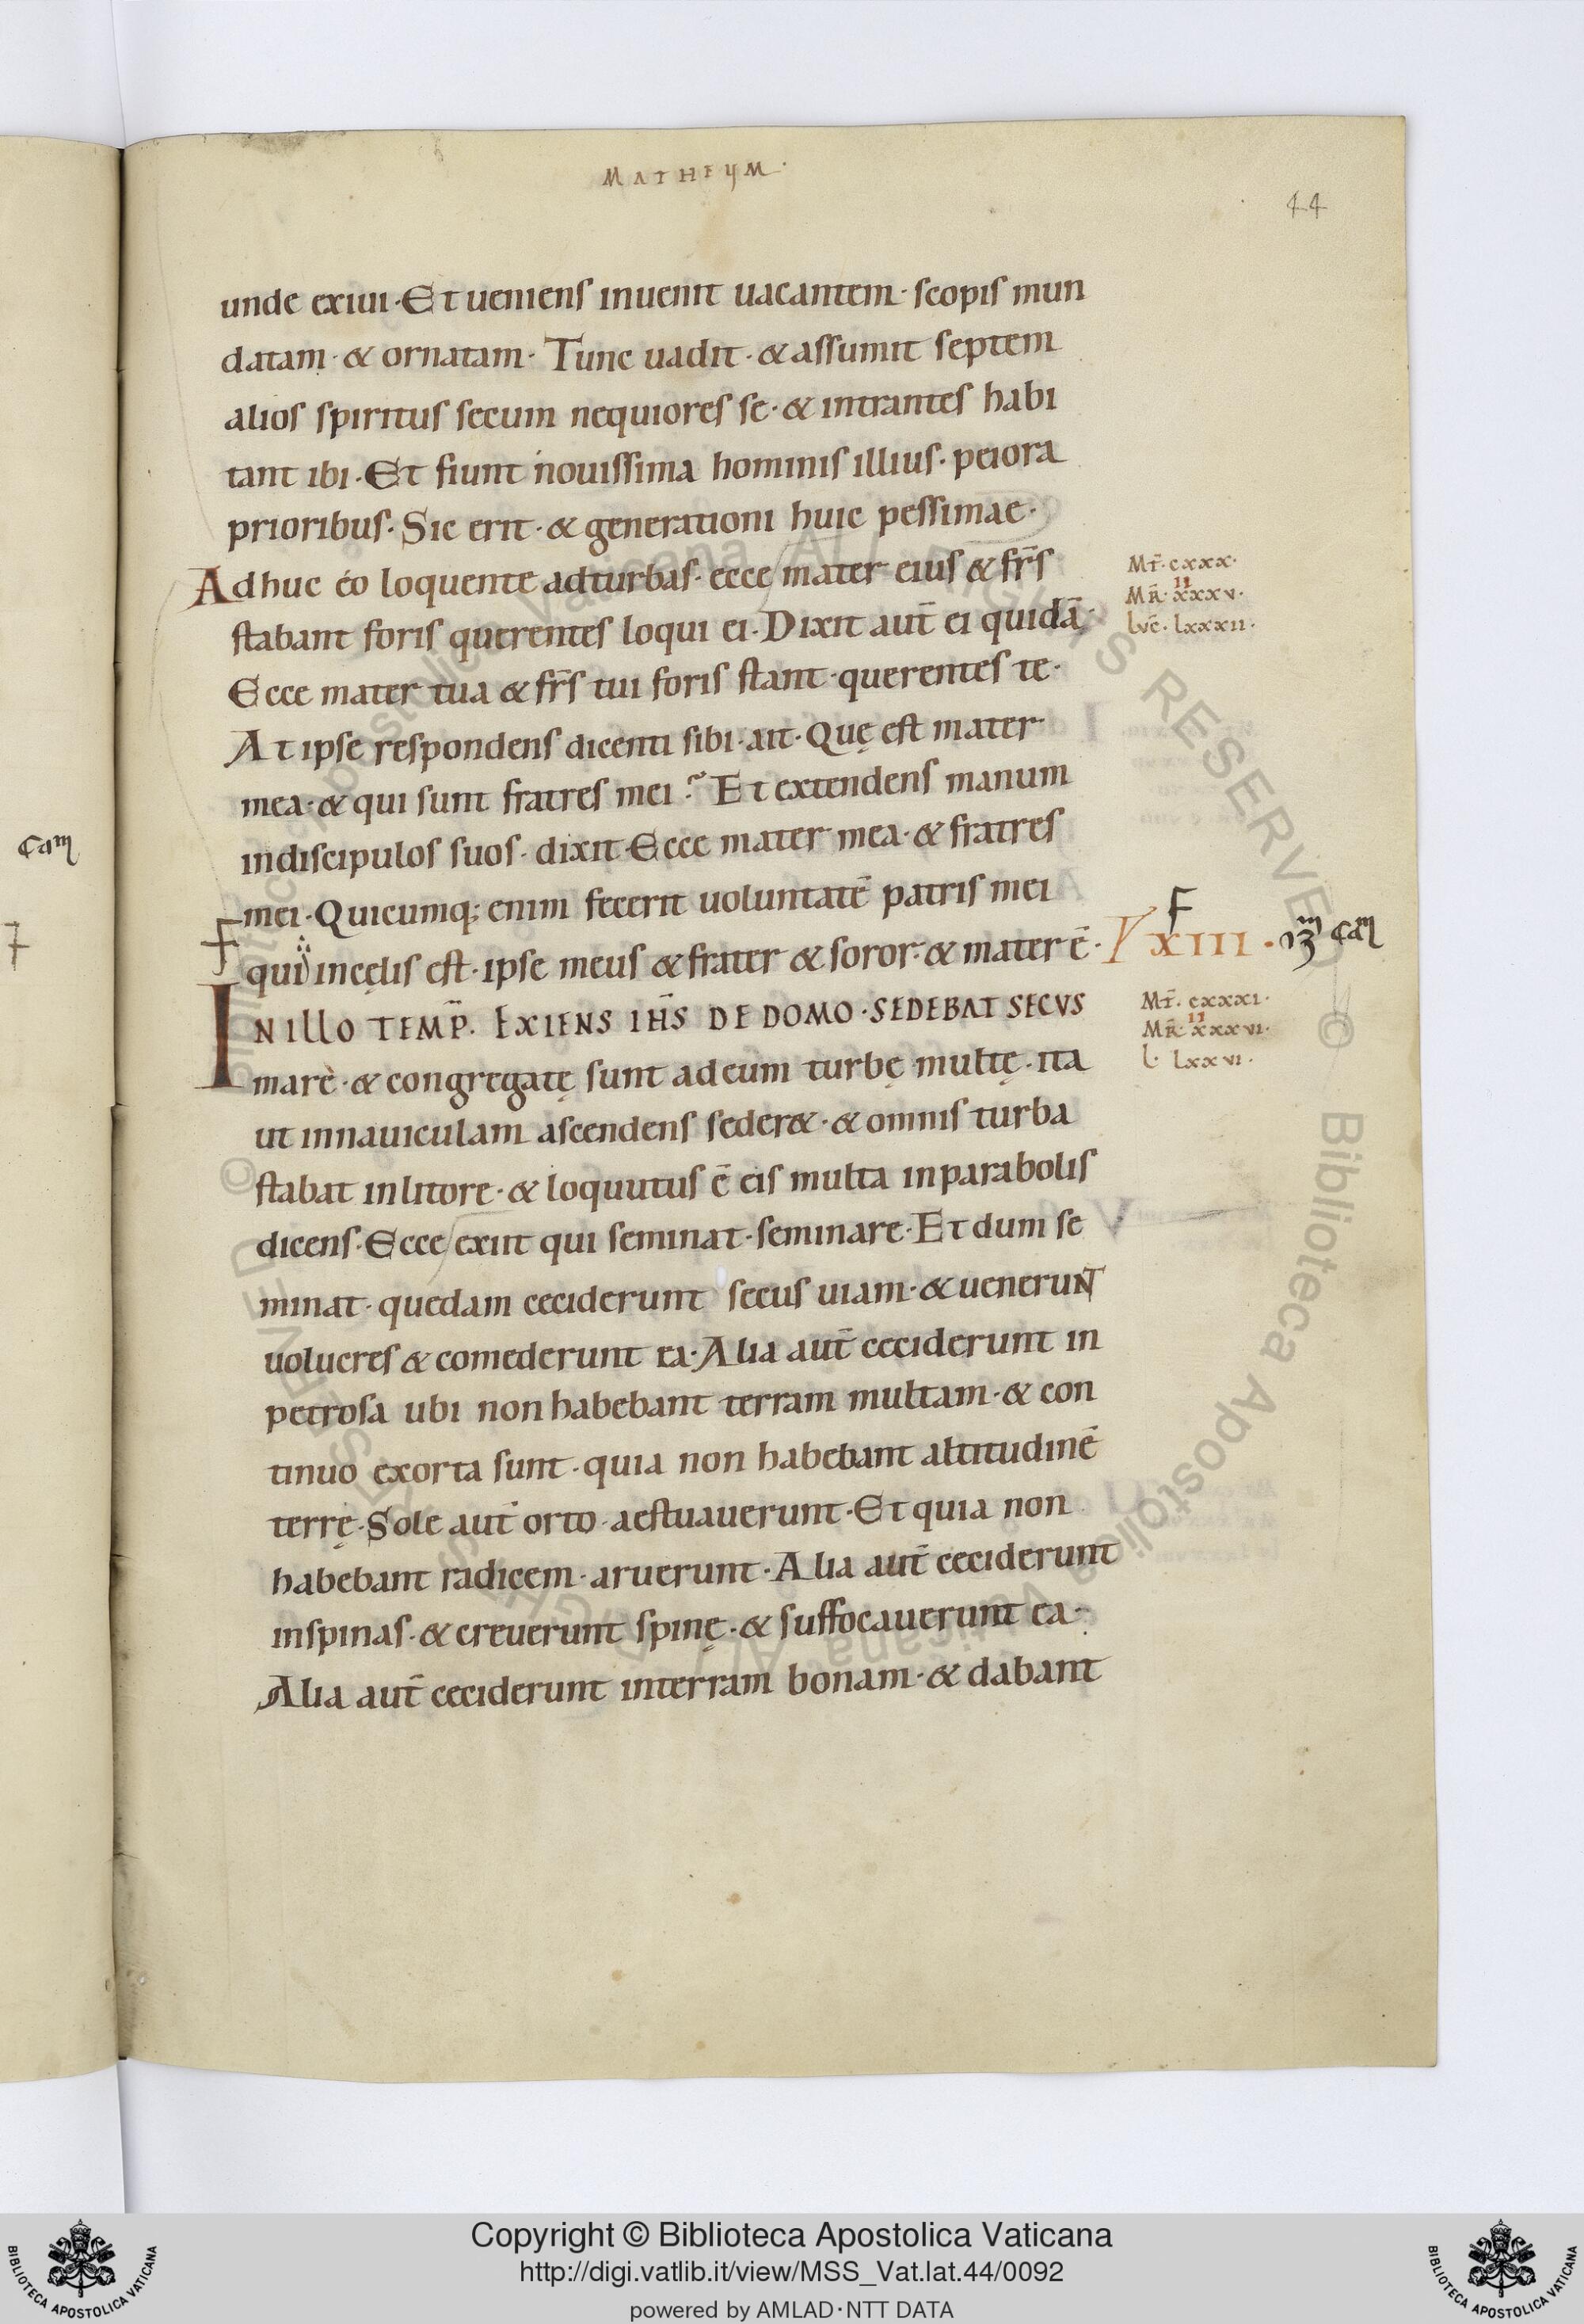 MATHEUM·
44
unde exiui·Et ueniens inuenit uacantem·scopis mun
datam·& ornatam·Tunc uadit·& assumit septem
alios spiritus secum nequiores se·& intrantes habi
tant ibi·Et fiunt nouissima hominis illius·peiora
prioribus·Sic erit·& generationi huic pessimae·
Adhuc eo loquente adturbas·ecce mater eius & fr̄s
Mt̄·cxxx·
II
MR̄·xxxv·
luc̄·lxxxii·
stabant foris querentes loqui ei·Dixit aut̄ ei quidā·
Ecce mater tua & fr̄s tui foris stant·querentes te·
At ipse respondens dicenti sibi·ait·Quę est mater
mea·& qui sunt fratres mei? Et extendens manum
indiscipulos suos·dixit·Ecce mater mea·& fratres
cam
mei·Quicumq; enim fecerit uoluntatē patris mei
F
qui incęlis est·ipse meus & frater & soror·& mater ē·
XIII·
cam
IN ILLO TEMP̄. EXIENS IH̄S DE DOMO·SEDEBAT SECVS
Mt̄·cxxxi·
II
MR̄·xxxvi·
l·lxxvi·
mare·& congregatę sunt adeum turbę multę·ita
ut innauiculam ascendens seder&·& omnis turba
stabat inlitore·& loquutus ē eis multa inparabolis
dicens·Ecce exiit qui seminat·seminare·Et dum se
minat·quedam ceciderunt secus uiam·& uenerunt
uolucres & comederunt ea·Alia aut̄ ceciderunt in
petrosa ubi non habebant terram multam·& con
tinuo exorta sunt·quia non habebant altitudinē
terrę·Sole aut̄ orto·aestuauerunt·Et quia non
habebant radicem·aruerunt·Alia aut̄ ceciderunt
inspinas·& creuerunt spinę·& suffocauerunt ea·
Alia aut̄ ceciderunt interram bonam·& dabant
© Biblioteca Apostolica Vaticana ALL RIGHTS RESERVED
Copyright © Biblioteca Apostolica Vaticana
http://digi.vatlib.it/view/MSS_Vat.lat.44/0092
powered by AMLAD·NTT DATA
BIBLIOTECA APOSTOLICA VATICANA
BIBLIOTECA APOSTOLICA VATICANA